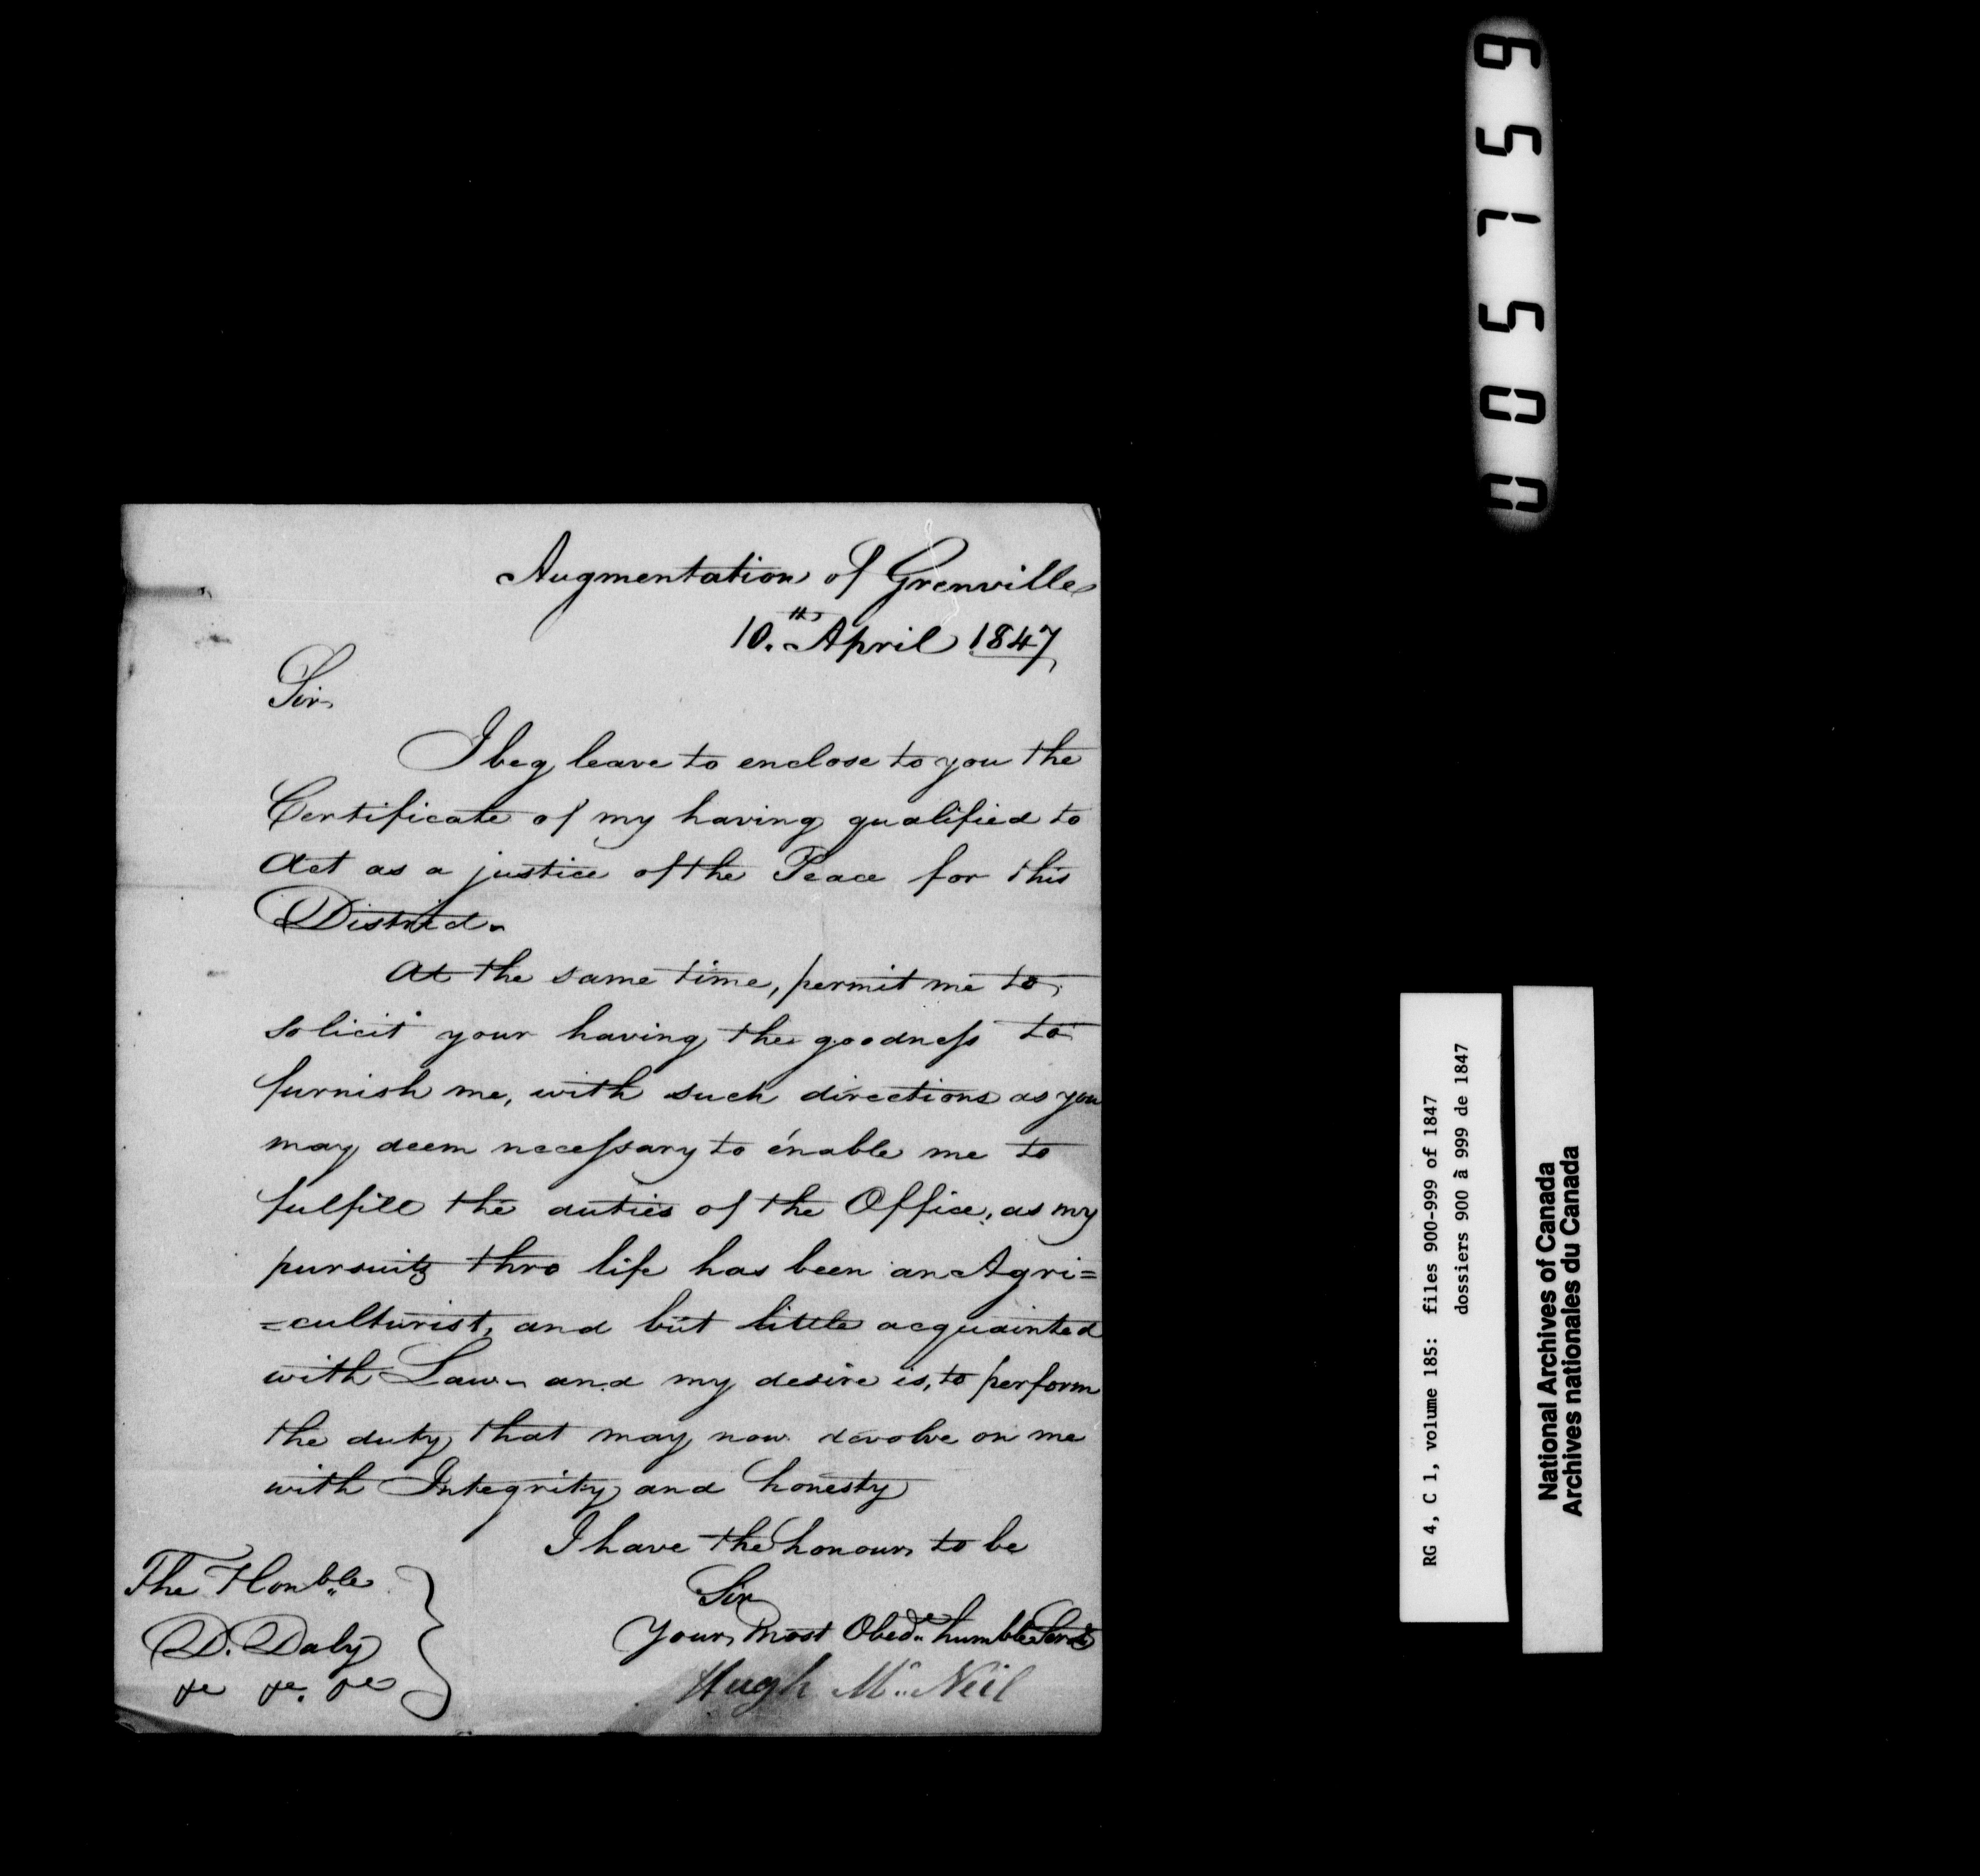 Augmentation of Grenville
10.th April 1847
Sir
I beg leave to enclose to you the
Certificate of my having qualified to
Act as a justice of the Peace for this
District.
At the same time, permit me to
solicit your having the goodness to
furnish me, with such directions as you
may deem necessary to enable me to
fulfill the duties of the Office, as my
pursuits thro life has been an Agri=
=culturist, and but little acquainted
with Law - and my desire is, to perform
the duty that may now devolve on me
with Integrity and honesty
I have the honour to be
Sir
Your most Obedt humble Servt
Hugh Mc Neil
The Honble
D. Daly
&c &c. &c
005159
RG 4, C 1, volume 185: files 900-999 of 1847
dossiers 900 à 999 de 1847
National Archives of Canada
Archives nationales du Canada